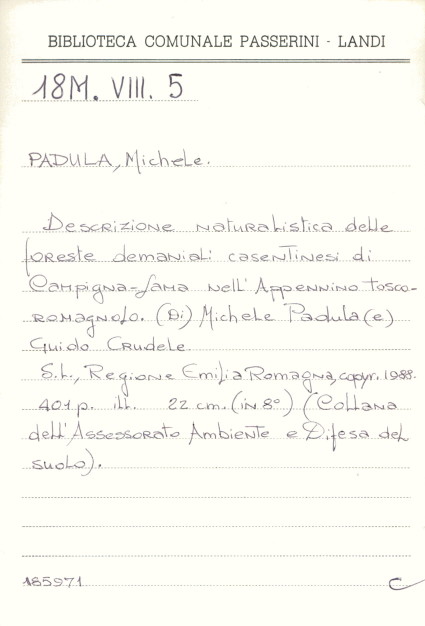 BIBLIOTECA COMUNALE PASSERINI - LANDI
18M. VIII. 5
PADULA, Michele.
Descrizione naturalistica delle
foreste demaniali casentinesi di
Campigna-Lama nell'Appennino tosco-
romagnolo. (Di) Michele Padula (e)
Guido Crudele.
S.l., Regione Emilia Romagna, copyr. 1988.
401 p. ill. 22 cm. (in 8°) (Collana
dell'Assessorato Ambiente e Difesa del
suolo).
185971 C